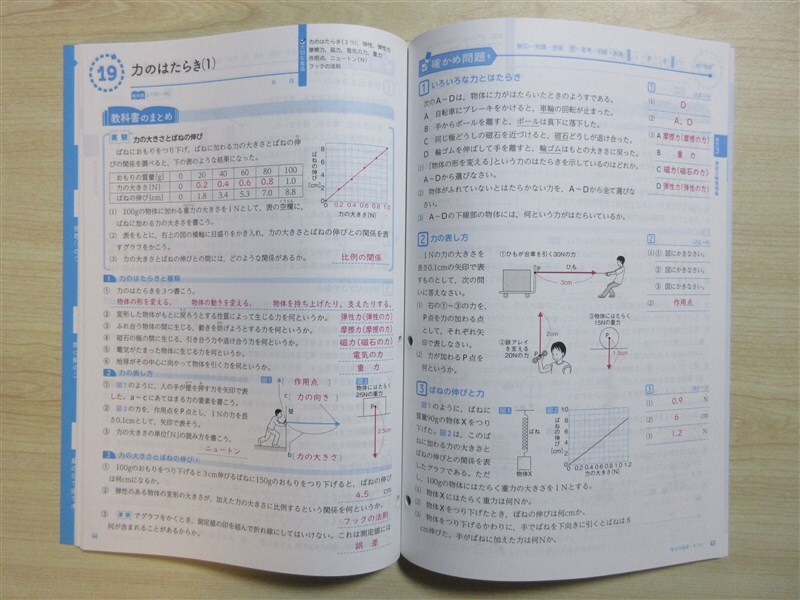 19
力のはたらき(1)
力のはたらき(3つ), 弾性, 弾性力
摩擦力, 磁力, 電気の力, 重力
作用点, ニュートン(N)
フックの法則
教科書のまとめ
実験 力の大きさとばねの伸び
ばねにおもりをつり下げ, ばねに加わる力の大きさとばねの伸
びの関係を調べると, 下の表のような結果になった。
おもりの質量[g] 0 20 40 60 80 100
力の大きさ(N) 0 0.2 0.4 0.6 0.8 1.0
ばねの伸び[cm] 0 1.8 3.4 5.3 7.0 8.8
ばねの伸び[cm]
0 0.2 0.4 0.6 0.8 1.0
力の大きさ(N)
(1) 100gの物体に加わる重力の大きさを1Nとして, 表の空欄に,
ばねに加わる力の大きさを書こう。
(2) 表をもとに, 右上の図の横軸に目盛りをかき入れ, 力の大きさとばねの伸びとの関係を表
すグラフをかこう。
(3) 力の大きさとばねの伸びとの間には, どのような関係があるか。
比例の関係
1 力のはたらきと種類
① 力のはたらきを3つ書こう。
物体の形を変える。 物体の動きを変える。 物体を持ち上げたり, 支えたりする。
② 変形した物体がもとに戻ろうとする性質によって生じる力を何というか。
弾性力(弾性の力)
③ ふれ合う物体の間に生じる, 動きを妨げようとする力を何というか。
摩擦力(摩擦の力)
④ 磁石の極の間に生じる, 引き合う力や退け合う力を何というか。
磁力(磁石の力)
⑤ 電気がたまった物体に生じる力を何というか。
電気の力
⑥ 地球がその中心に向かって物体を引く力を何というか。
重力
2 力の表し方
① 図1のように, 人の手が壁を押す力を矢印で表
した。a〜cにあてはまる力の要素を書こう。
② 図2の力を, 作用点をP点とし, 1Nの力を長
さ0.1cmとして, 矢印で表そう。
③ 力の大きさの単位[N]の読み方を書こう。
ニュートン
図1
a( 作用点 )
b( 力の向き )
壁
c( 力の大きさ )
図2
物体にはたらく
25Nの重力
P
2.5cm
3 力の大きさとばねの伸び
① 100gのおもりをつり下げると3cm伸びるばねに150gのおもりをつり下げると, 伸び
は何cmになるか。
4.5 cm
② 弾性のある物体の変形の大きさが, 加えた力の大きさに比例するという関係を何というか。
フックの法則
③ 実験でグラフをかくとき, 測定値の印を結んで折れ線にしてはいけない。これは測定値には
何が含まれることがあるからか。
誤差
確かめ問題
1 いろいろな力とはたらき
次のA〜Dは, 物体に力がはたらいたときのようすである。
A 自転車にブレーキをかけると, 車輪の回転が止まった。
B 手からボールを離すと, ボールは真下に落下した。
C 同じ極どうしの磁石を近づけると, 磁石どうしが退け合った。
D 輪ゴムを伸ばして手を離すと, 輪ゴムはもとの大きさに戻った。
(1) 「物体の形を変える」という力のはたらきを示しているのはどれか。
A〜Dから選びなさい。
(2) 物体がふれていないとはたらかない力を, A〜Dから全て選びな
さい。
(3) A〜Dの下線部の物体には, 何という力がはたらいているか。
1
(1) D
(2) A, D
(3) A 摩擦力(摩擦の力)
B 重力
C 磁力(磁石の力)
D 弾性力(弾性の力)
2 力の表し方
1Nの力の大きさ
を長さ0.1cmの矢印で表
すものとして, 次の問
いに答えなさい。
(1) 右の①〜③の力を,
P点を力の加わる点
として, それぞれ矢
印で表しなさい。
(2) 力が加わるP点を
何というか。
①ひもが台車を引く30Nの力
P
ひも
3cm
②鉄アレイ
を支える
20Nの力
2cm
P
③物体にはたらく
15Nの重力
P
1.5cm
2
(1) ① 図にかきなさい。
② 図にかきなさい。
③ 図にかきなさい。
(2) 作用点
3 ばねの伸びと力
図1のように, ばねに
質量90gの物体Xをつり
下げた。図2は, このば
ねに加わる力の大きさと
ばねの伸びとの関係を表
したグラフである。ただ
し, 100gの物体にはたらく重力の大きさを1Nとする。
(1) 物体Xにはたらく重力は何Nか。
(2) 物体Xをつり下げたとき, ばねの伸びは何cmか。
(3) 物体をつり下げるかわりに, 手でばねを下向きに引くとばねは8
cm伸びた。手がばねに加えた力は何Nか。
図1
ばね
物体X
図2
ばねの伸び[cm]
10
8
6
4
2
0
0 0.2 0.4 0.6 0.8 1.0 1.2
力の大きさ(N)
3
(1) 0.9 N
(2) 6 cm
(3) 1.2 N
44
45